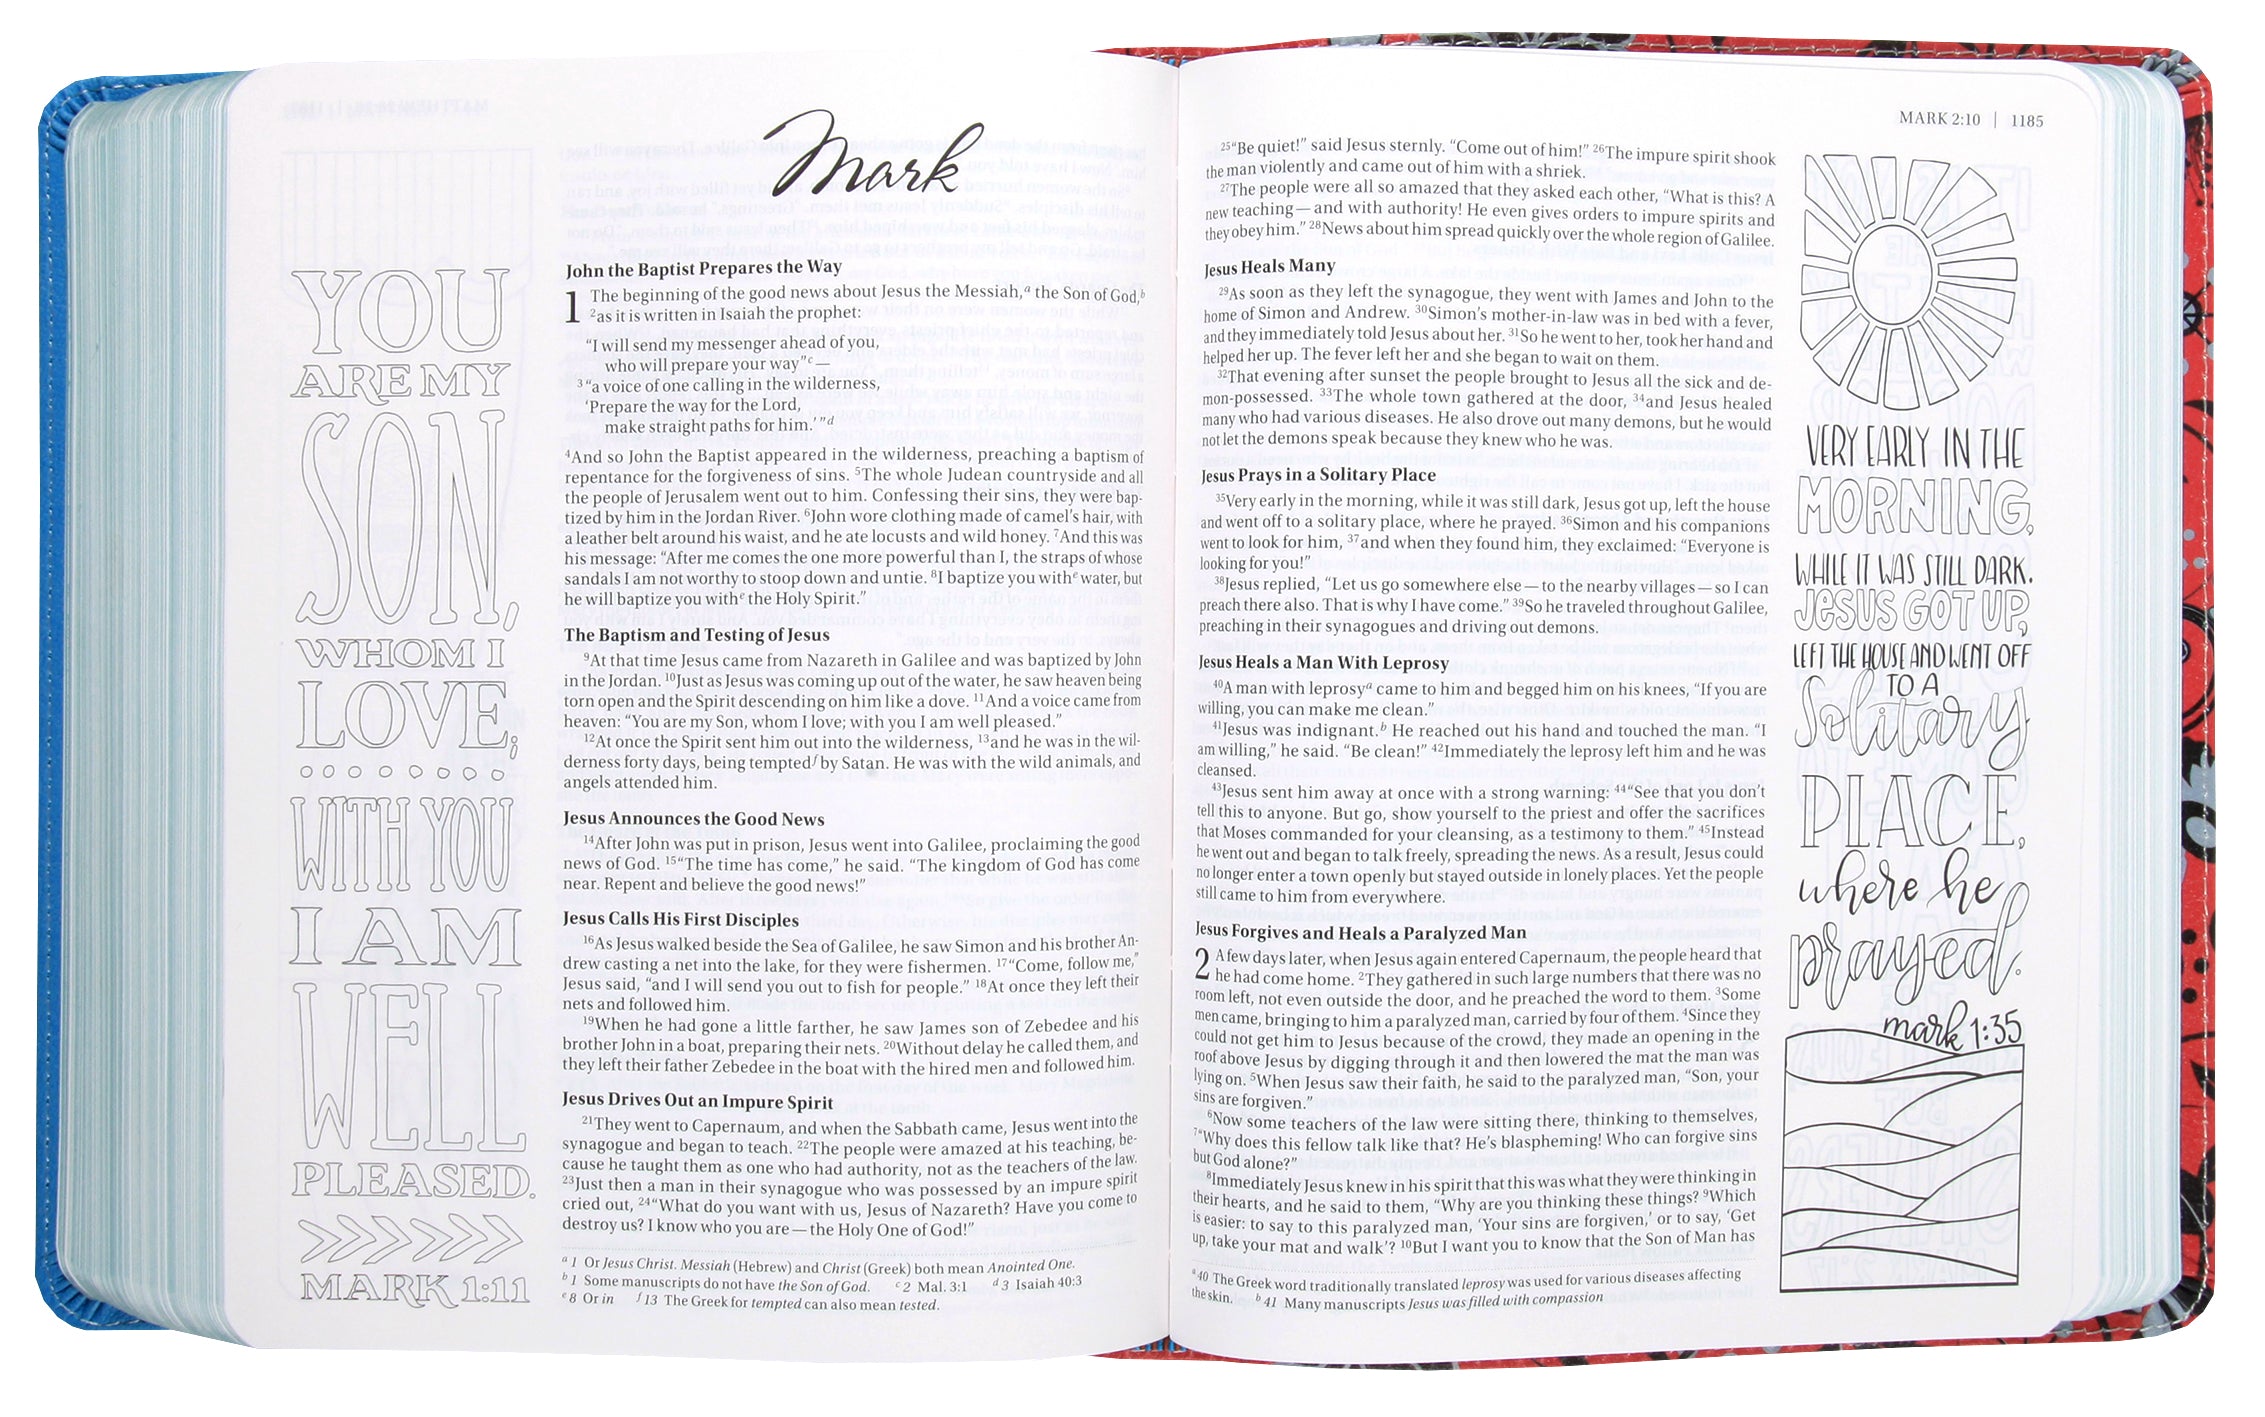 Mark
YOU
ARE MY
SON,
WHOM I
LOVE;
WITH YOU
I AM
WELL
PLEASED.
MARK 1:11
John the Baptist Prepares the Way
1 The beginning of the good news about Jesus the Messiah,a the Son of God,b
2as it is written in Isaiah the prophet:
“I will send my messenger ahead of you,
who will prepare your way”c—
3“a voice of one calling in the wilderness,
‘Prepare the way for the Lord,
make straight paths for him.’”d
4And so John the Baptist appeared in the wilderness, preaching a baptism of
repentance for the forgiveness of sins. 5The whole Judean countryside and all
the people of Jerusalem went out to him. Confessing their sins, they were bap-
tized by him in the Jordan River. 6John wore clothing made of camel’s hair, with
a leather belt around his waist, and he ate locusts and wild honey. 7And this was
his message: “After me comes the one more powerful than I, the straps of whose
sandals I am not worthy to stoop down and untie. 8I baptize you withe water, but
he will baptize you withe the Holy Spirit.”
The Baptism and Testing of Jesus
9At that time Jesus came from Nazareth in Galilee and was baptized by John
in the Jordan. 10Just as Jesus was coming up out of the water, he saw heaven being
torn open and the Spirit descending on him like a dove. 11And a voice came from
heaven: “You are my Son, whom I love; with you I am well pleased.”
12At once the Spirit sent him out into the wilderness, 13and he was in the wil-
derness forty days, being temptedf by Satan. He was with the wild animals, and
angels attended him.
Jesus Announces the Good News
14After John was put in prison, Jesus went into Galilee, proclaiming the good
news of God. 15“The time has come,” he said. “The kingdom of God has come
near. Repent and believe the good news!”
Jesus Calls His First Disciples
16As Jesus walked beside the Sea of Galilee, he saw Simon and his brother An-
drew casting a net into the lake, for they were fishermen. 17“Come, follow me,”
Jesus said, “and I will send you out to fish for people.” 18At once they left their
nets and followed him.
19When he had gone a little farther, he saw James son of Zebedee and his
brother John in a boat, preparing their nets. 20Without delay he called them, and
they left their father Zebedee in the boat with the hired men and followed him.
Jesus Drives Out an Impure Spirit
21They went to Capernaum, and when the Sabbath came, Jesus went into the
synagogue and began to teach. 22The people were amazed at his teaching, be-
cause he taught them as one who had authority, not as the teachers of the law.
23Just then a man in their synagogue who was possessed by an impure spirit
cried out, 24“What do you want with us, Jesus of Nazareth? Have you come to
destroy us? I know who you are—the Holy One of God!”
a 1 Or Jesus Christ. Messiah (Hebrew) and Christ (Greek) both mean Anointed One.
b 1 Some manuscripts do not have the Son of God. c 2 Mal. 3:1 d 3 Isaiah 40:3
e 8 Or in f 13 The Greek for tempted can also mean tested.
MARK 2:10 | 1185
25“Be quiet!” said Jesus sternly. “Come out of him!” 26The impure spirit shook
the man violently and came out of him with a shriek.
27The people were all so amazed that they asked each other, “What is this? A
new teaching—and with authority! He even gives orders to impure spirits and
they obey him.” 28News about him spread quickly over the whole region of Galilee.
Jesus Heals Many
29As soon as they left the synagogue, they went with James and John to the
home of Simon and Andrew. 30Simon’s mother-in-law was in bed with a fever,
and they immediately told Jesus about her. 31So he went to her, took her hand and
helped her up. The fever left her and she began to wait on them.
32That evening after sunset the people brought to Jesus all the sick and de-
mon-possessed. 33The whole town gathered at the door, 34and Jesus healed
many who had various diseases. He also drove out many demons, but he would
not let the demons speak because they knew who he was.
Jesus Prays in a Solitary Place
35Very early in the morning, while it was still dark, Jesus got up, left the house
and went off to a solitary place, where he prayed. 36Simon and his companions
went to look for him, 37and when they found him, they exclaimed: “Everyone is
looking for you!”
38Jesus replied, “Let us go somewhere else—to the nearby villages—so I can
preach there also. That is why I have come.” 39So he traveled throughout Galilee,
preaching in their synagogues and driving out demons.
Jesus Heals a Man With Leprosy
40A man with leprosya came to him and begged him on his knees, “If you are
willing, you can make me clean.”
41Jesus was indignant.b He reached out his hand and touched the man. “I
am willing,” he said. “Be clean!” 42Immediately the leprosy left him and he was
cleansed.
43Jesus sent him away at once with a strong warning: 44“See that you don’t
tell this to anyone. But go, show yourself to the priest and offer the sacrifices
that Moses commanded for your cleansing, as a testimony to them.” 45Instead
he went out and began to talk freely, spreading the news. As a result, Jesus could
no longer enter a town openly but stayed outside in lonely places. Yet the people
still came to him from everywhere.
Jesus Forgives and Heals a Paralyzed Man
2 A few days later, when Jesus again entered Capernaum, the people heard that
he had come home. 2They gathered in such large numbers that there was no
room left, not even outside the door, and he preached the word to them. 3Some
men came, bringing to him a paralyzed man, carried by four of them. 4Since they
could not get him to Jesus because of the crowd, they made an opening in the
roof above Jesus by digging through it and then lowered the mat the man was
lying on. 5When Jesus saw their faith, he said to the paralyzed man, “Son, your
sins are forgiven.”
6Now some teachers of the law were sitting there, thinking to themselves,
7“Why does this fellow talk like that? He’s blaspheming! Who can forgive sins
but God alone?”
8Immediately Jesus knew in his spirit that this was what they were thinking in
their hearts, and he said to them, “Why are you thinking these things? 9Which
is easier: to say to this paralyzed man, ‘Your sins are forgiven,’ or to say, ‘Get
up, take your mat and walk’? 10But I want you to know that the Son of Man has
a 40 The Greek word traditionally translated leprosy was used for various diseases affecting
the skin. b 41 Many manuscripts Jesus was filled with compassion
VERY EARLY IN THE
MORNING,
WHILE IT WAS STILL DARK.
JESUS GOT UP,
LEFT THE HOUSE AND WENT OFF
TO A
Solitary
PLACE,
where he
prayed.
mark 1:35